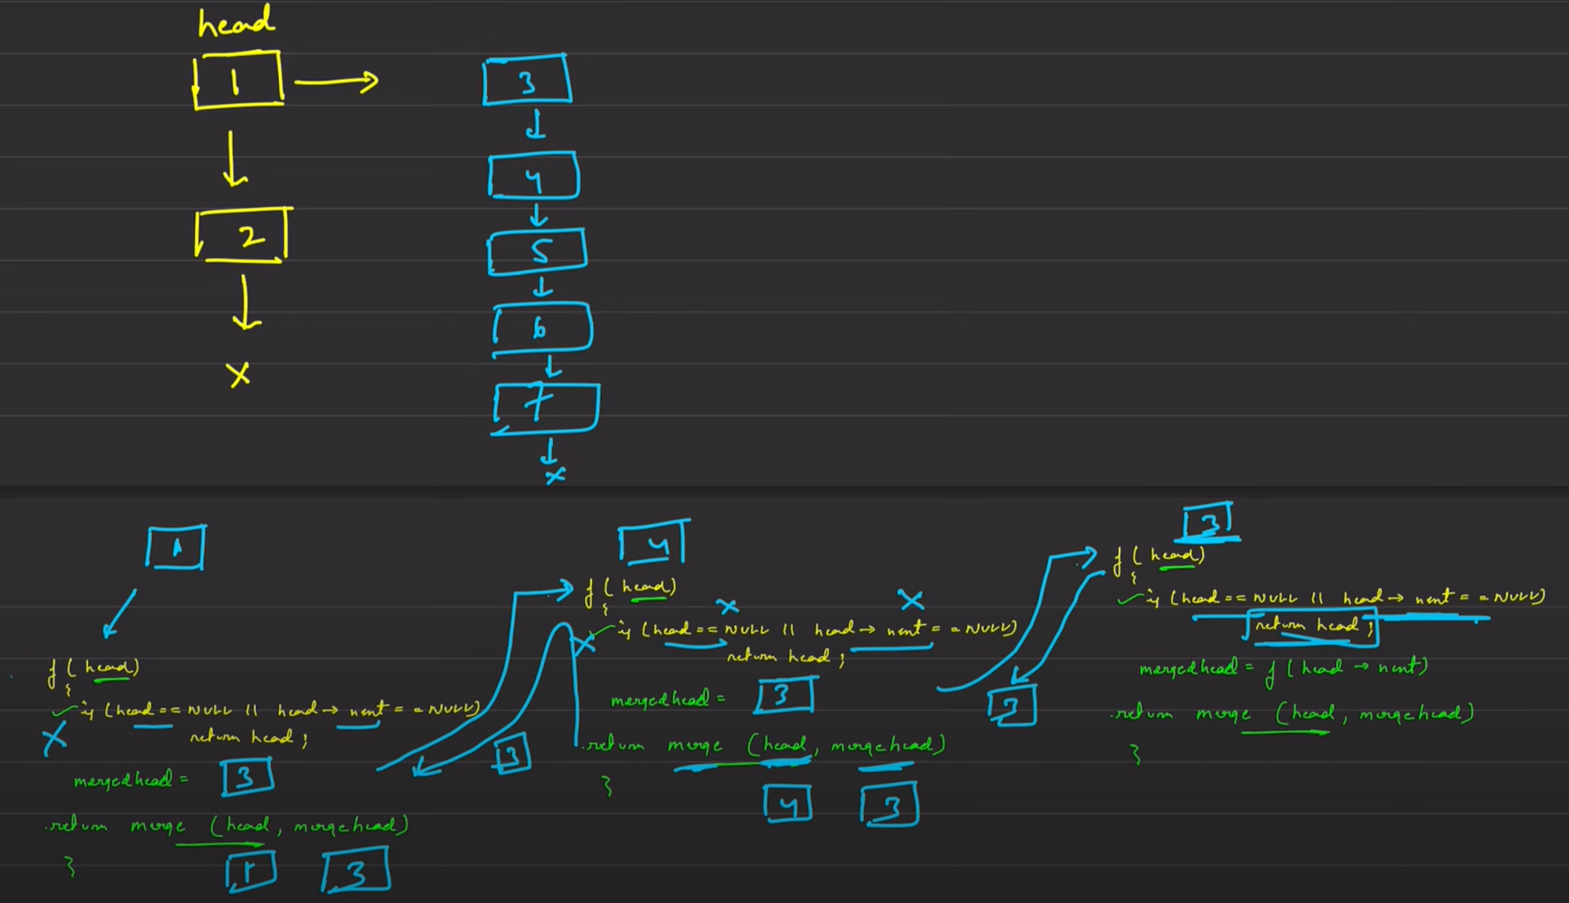 head
1
3
4
2
5
6
x
7
x
3
4
1
f ( head)
{
if (head == NULL || head → next == NULL)
return head ;
mergedhead = f ( head → next)
return merge (head, mergehead)
}
3
f ( head)
{
if (head == NULL || head → next == NULL)
return head ;
mergedhead = 3
return merge (head, mergehead)
}
4 3
3
f ( head)
{
if (head == NULL || head → next == NULL)
return head ;
mergedhead = 3
return merge (head, mergehead)
}
1 3